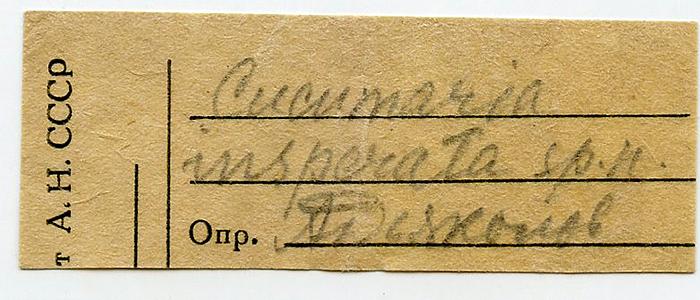 т А. Н. СССР
Cucumaria
insperata sp. n.
Опр. Дьяконов